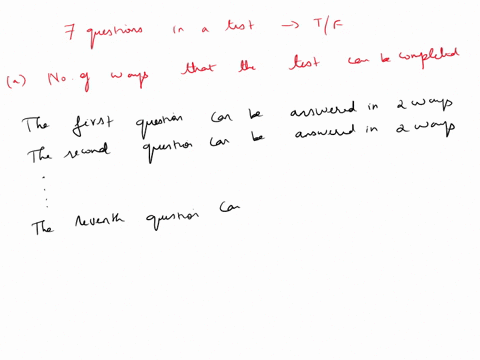 7 questions in a test → T/F
(a) No. of ways that the test can be completed
The first question can be answered in 2 ways
The second question can be answered in 2 ways
The seventh question can